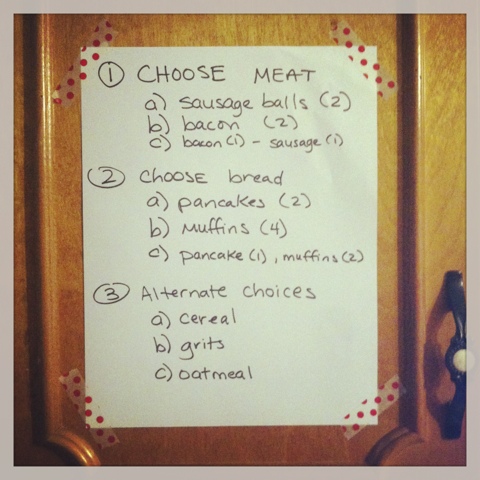 ① CHOOSE MEAT
a) sausage balls (2)
b) bacon (2)
c) bacon (1) - sausage (1)
② CHOOSE bread
a) pancakes (2)
b) Muffins (4)
c) pancake (1), muffins (2)
③ Alternate choices
a) cereal
b) grits
c) oatmeal